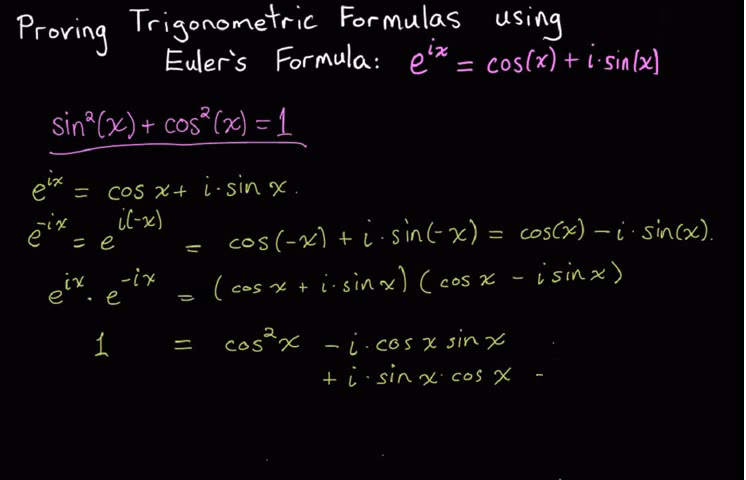 Proving Trigonometric Formulas using
Euler's Formula: e^{ix} = cos(x) + i·sin(x)
sin²(x) + cos²(x) = 1
e^{ix} = cos x + i·sin x.
e^{-ix} = e^{i(-x)} = cos(-x) + i·sin(-x) = cos(x) - i·sin(x).
e^{ix} · e^{-ix} = (cos x + i·sin x)(cos x - i sin x)
1 = cos²x - i·cos x sin x
+ i·sin x·cos x -